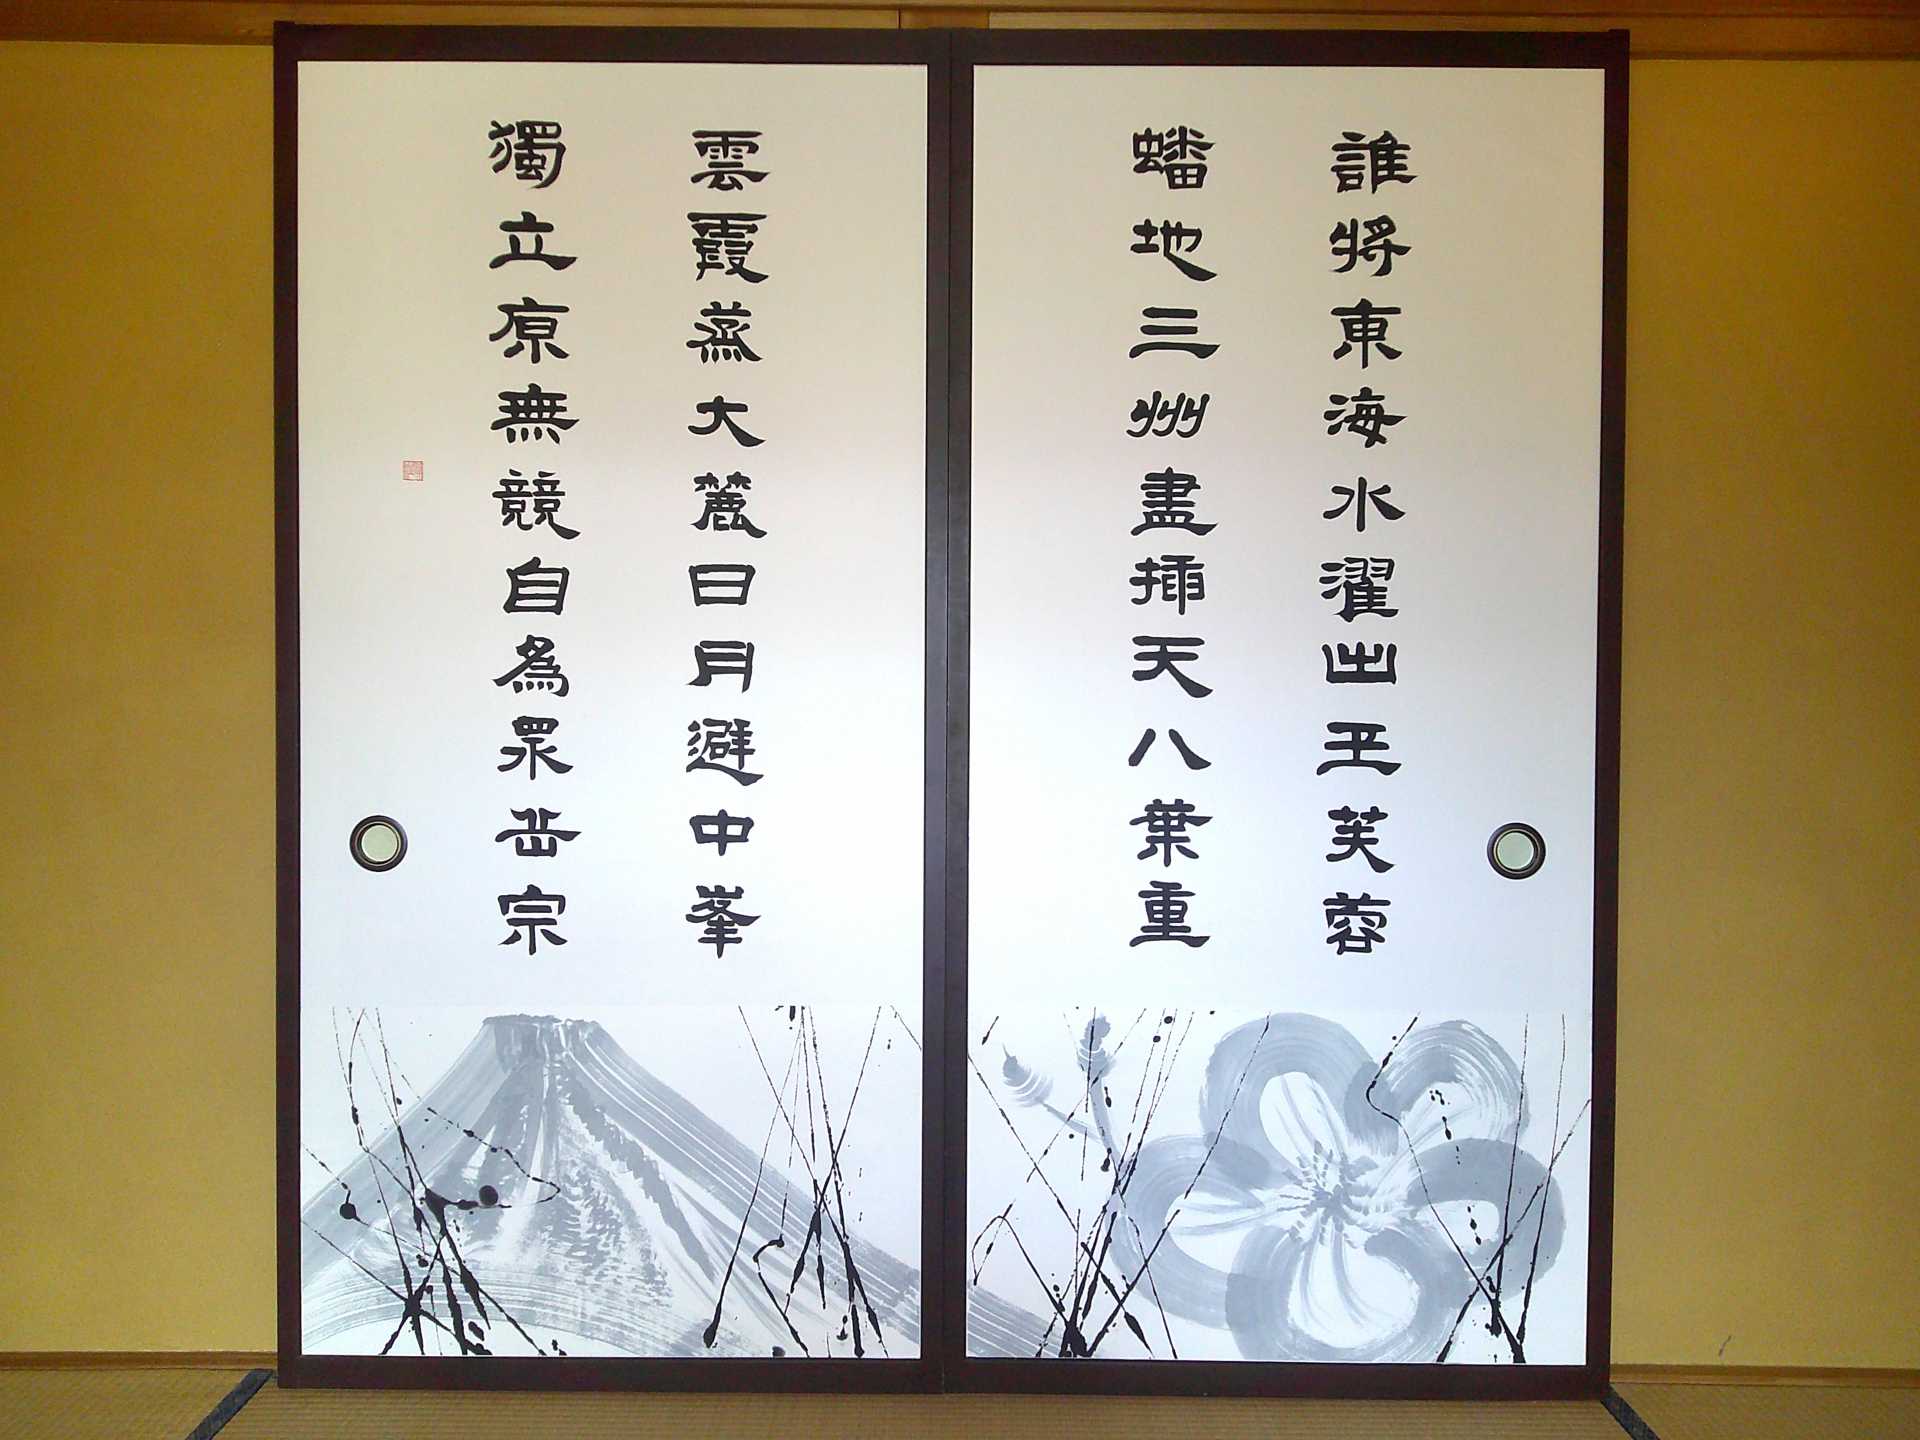 誰將東海水濯出玉芙蓉
蟠地三州盡插天八葉重
雲霞蒸大麓日月避中峯
獨立原無競自為眾岳宗